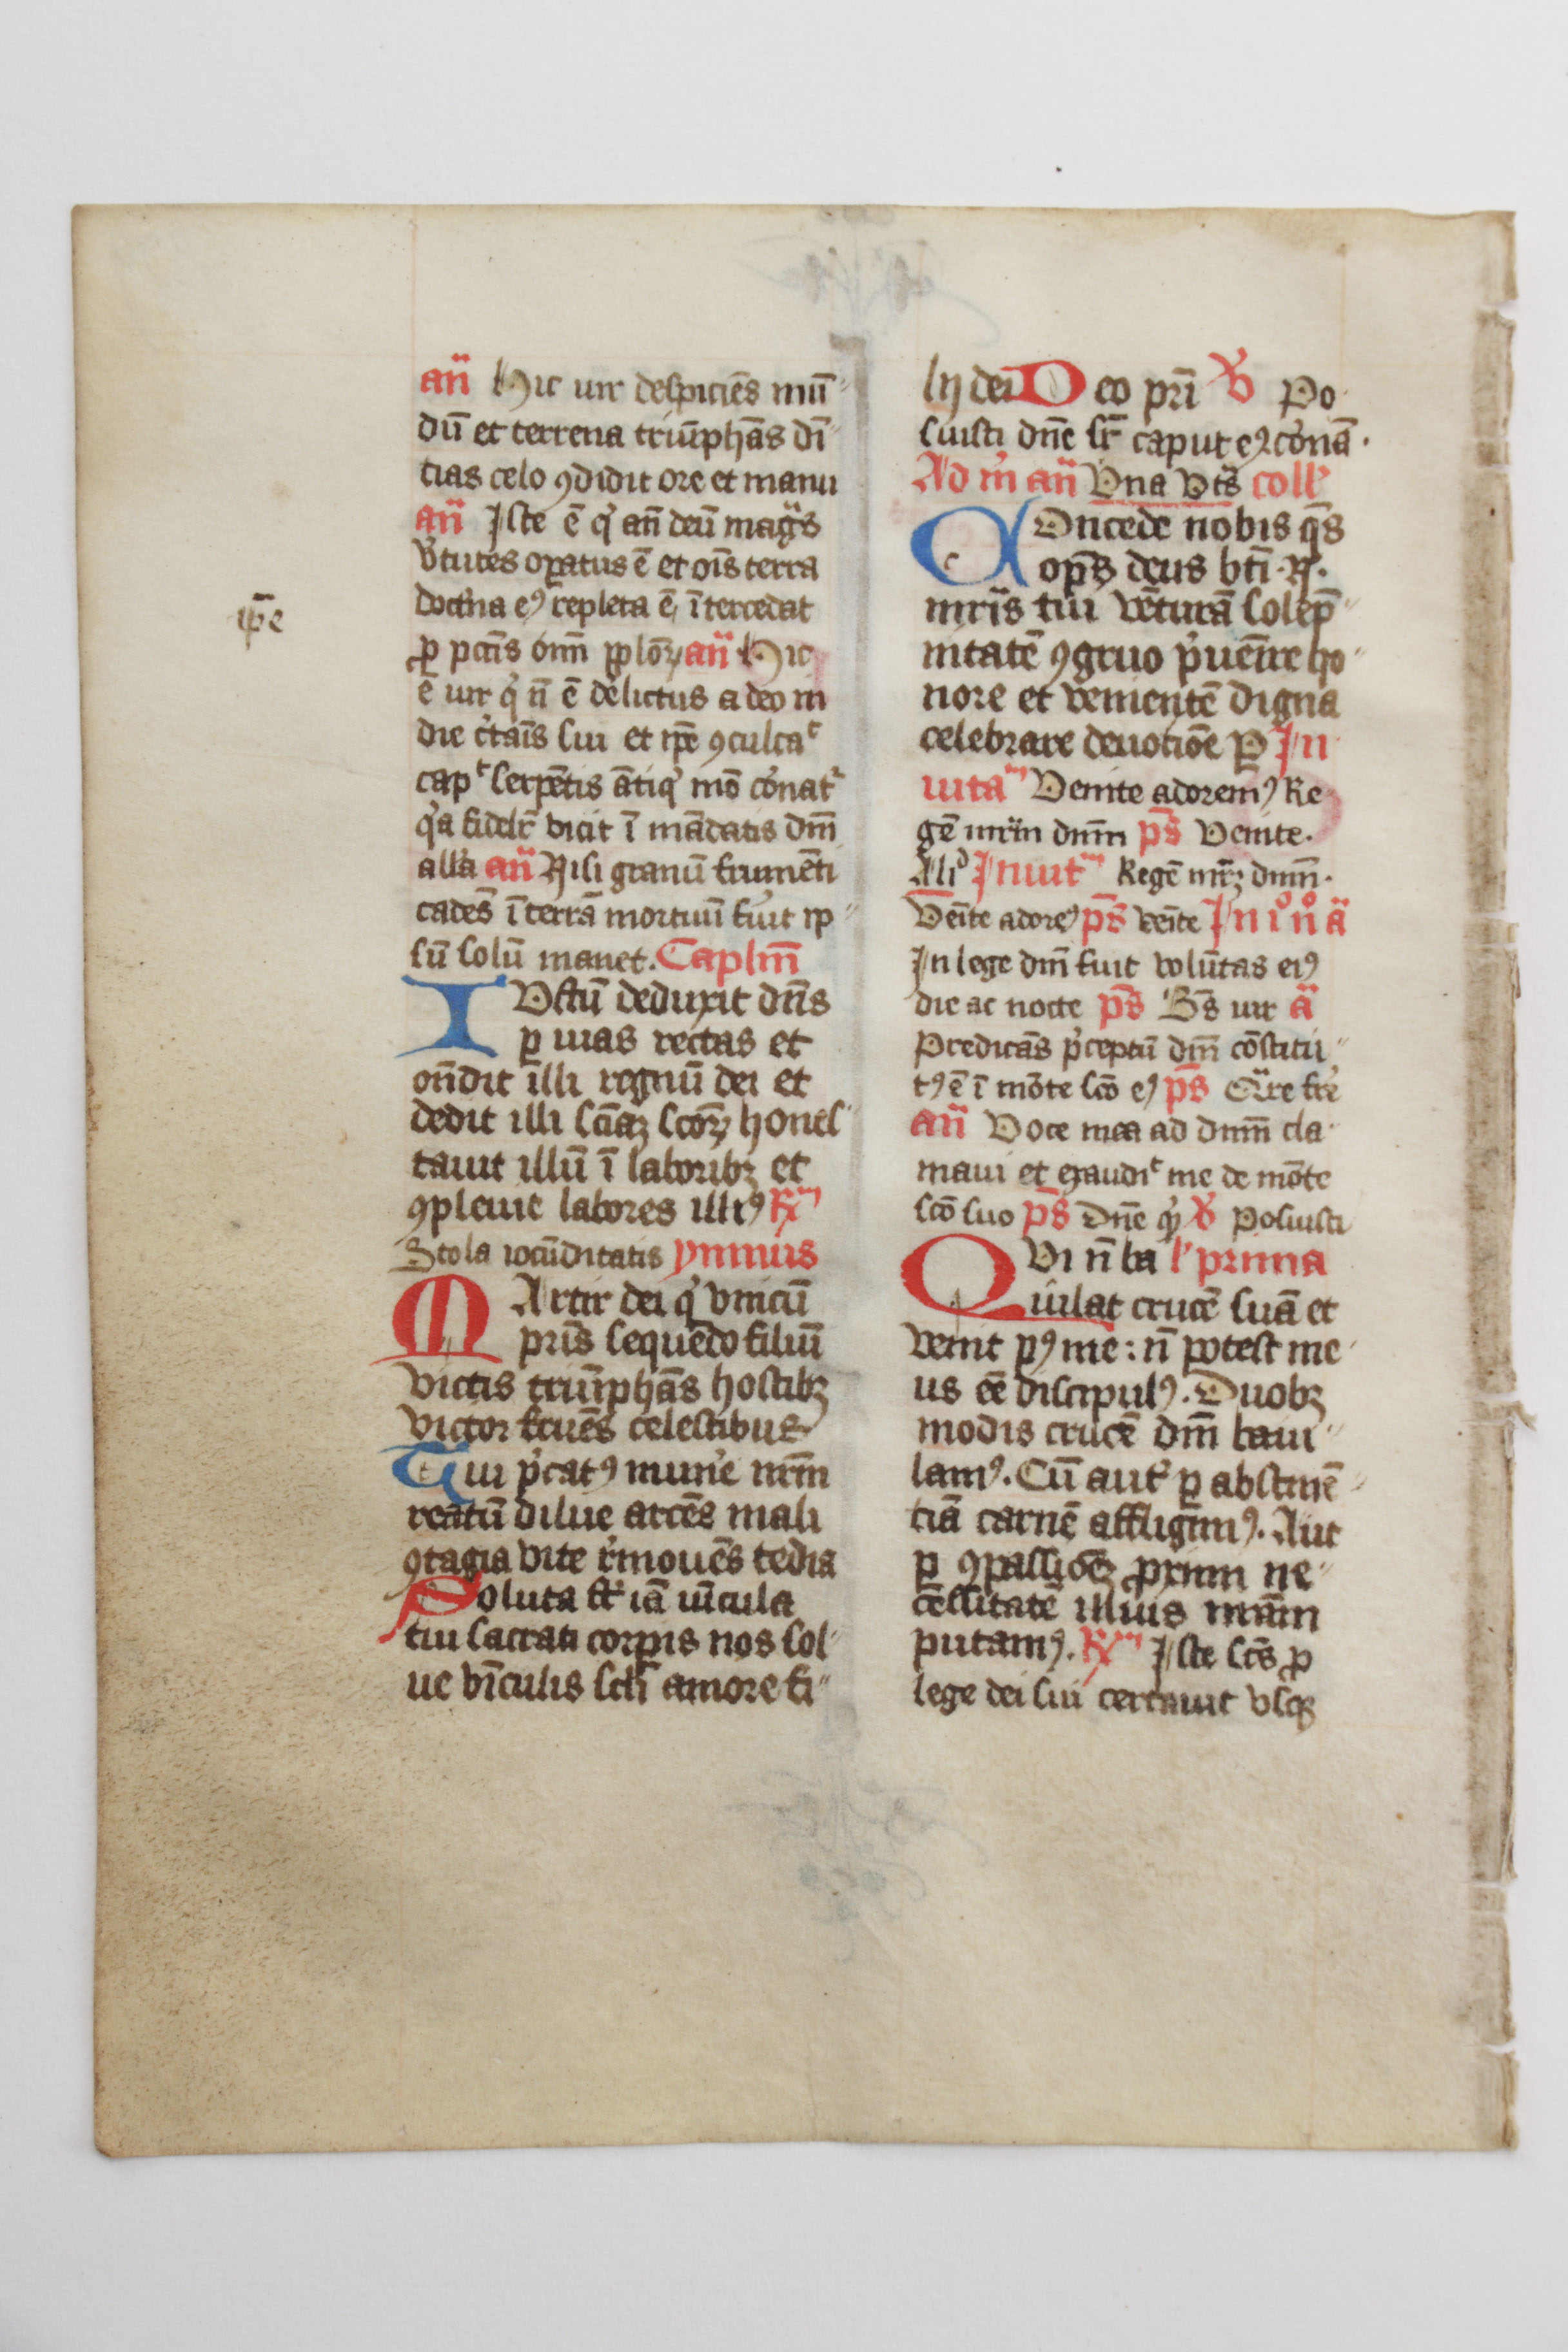 an̄ Hic uir despiciēs mū
dū et terrena triūphās di
tias celo ꝯdidit ore et manu
an̄ Iste ē q' an̄ deū magͣs
v'tutes oꝑatus ē et oīs terra
doct'na eꝰ repleta ē, īt'cedat
ip̄e
ꝓ pctīs om̄ pplōꝝ an̄ Hic
ē uir q' n̄ ē de'lictus a deo in
die c'taīs sui et ip̄e ꝯculcaᵗ
capᵗ serpētis ātiq' mō co'nat᷑
q'a fidelr̄ vicit ī mādatis dm̄
all'a an̄ Nisi granū frumēti
cadēs ī terrā mortuū fu'it ip
sū solū manet. Caplm̄
IVstū deduxit dn̄s
ꝑ uias rectas et
on̄dit illi regnū dei et
dedit illi scīaꝫ sctōꝝ hones
tauit illū ī laboribꝫ et
ꝯpleuit labores illiꝰ ℞ᵐ
Stola iocūditatis ymnus
MArtir dei q' vnicū
pris̄ sequēdo filiū
victis triūphās hostibꝫ
victor fruēs celestibus
Tui p'catꝰ mune'e nr̄m
reatū dilue arcēs mali
ꝯtagia vite r'mouēs tedia
Soluta st̄ iā uīcula
tui sacrati corpis nos sol
ue vīculis scl̄i amore fi
lij dei Deo pr̄i ℣ Po
suisti dn̄e sr̄ caput eꝰ co'nā.
Ad m̄ an̄ Vna vts̄ coll'
COncede nobis q̄s
op̄s deus bt̄i .N.
mr̄is tui vēturā solēp
nitatē ꝯgruo p'uēīre ho
nore et venientē digna
celebrare deuotiōe P In
uitaᵐ Venite adoremꝰ Re
gē mr̄m dnm̄ ps̄ Venite.
Aliᵈ Inuitᵐ Regē mr̄ꝫ dnm̄.
Venīte adorēꝰ ps̄ venīte In iᵒ nᵒ ā
In lege dm̄ fuit volūtas eiꝰ
die ac nocte ps̄ Bs̄ uir ā
Predicās p'ceptū dm̄ cōstitu
tꝰ ē ī mōte sco eꝰ ps̄ Qͣre fre'
an̄ Voce mea ad dnm̄ cla
maui et exaudiᵗ me de mōte
scō suo ps̄ Dn̄e q' ℣ Posuisti
QVi n̄ ba l' prima
iulat crucē suā et
venit pꝰ me : n̄ potest me
us eē discipulꝰ. Duobꝫ
modis crucē dm̄ baui
lamꝰ. Cū aut' ꝑ abstinē
tiā carnē affligimꝰ. Aut
ꝑ ꝯpassiōeꝫ proximi ne
cēssitatē illius nr̄am
putamꝰ. ℞ᵐ Iste sct̄s ꝓ
lege dei sui certauit vsqꝫ